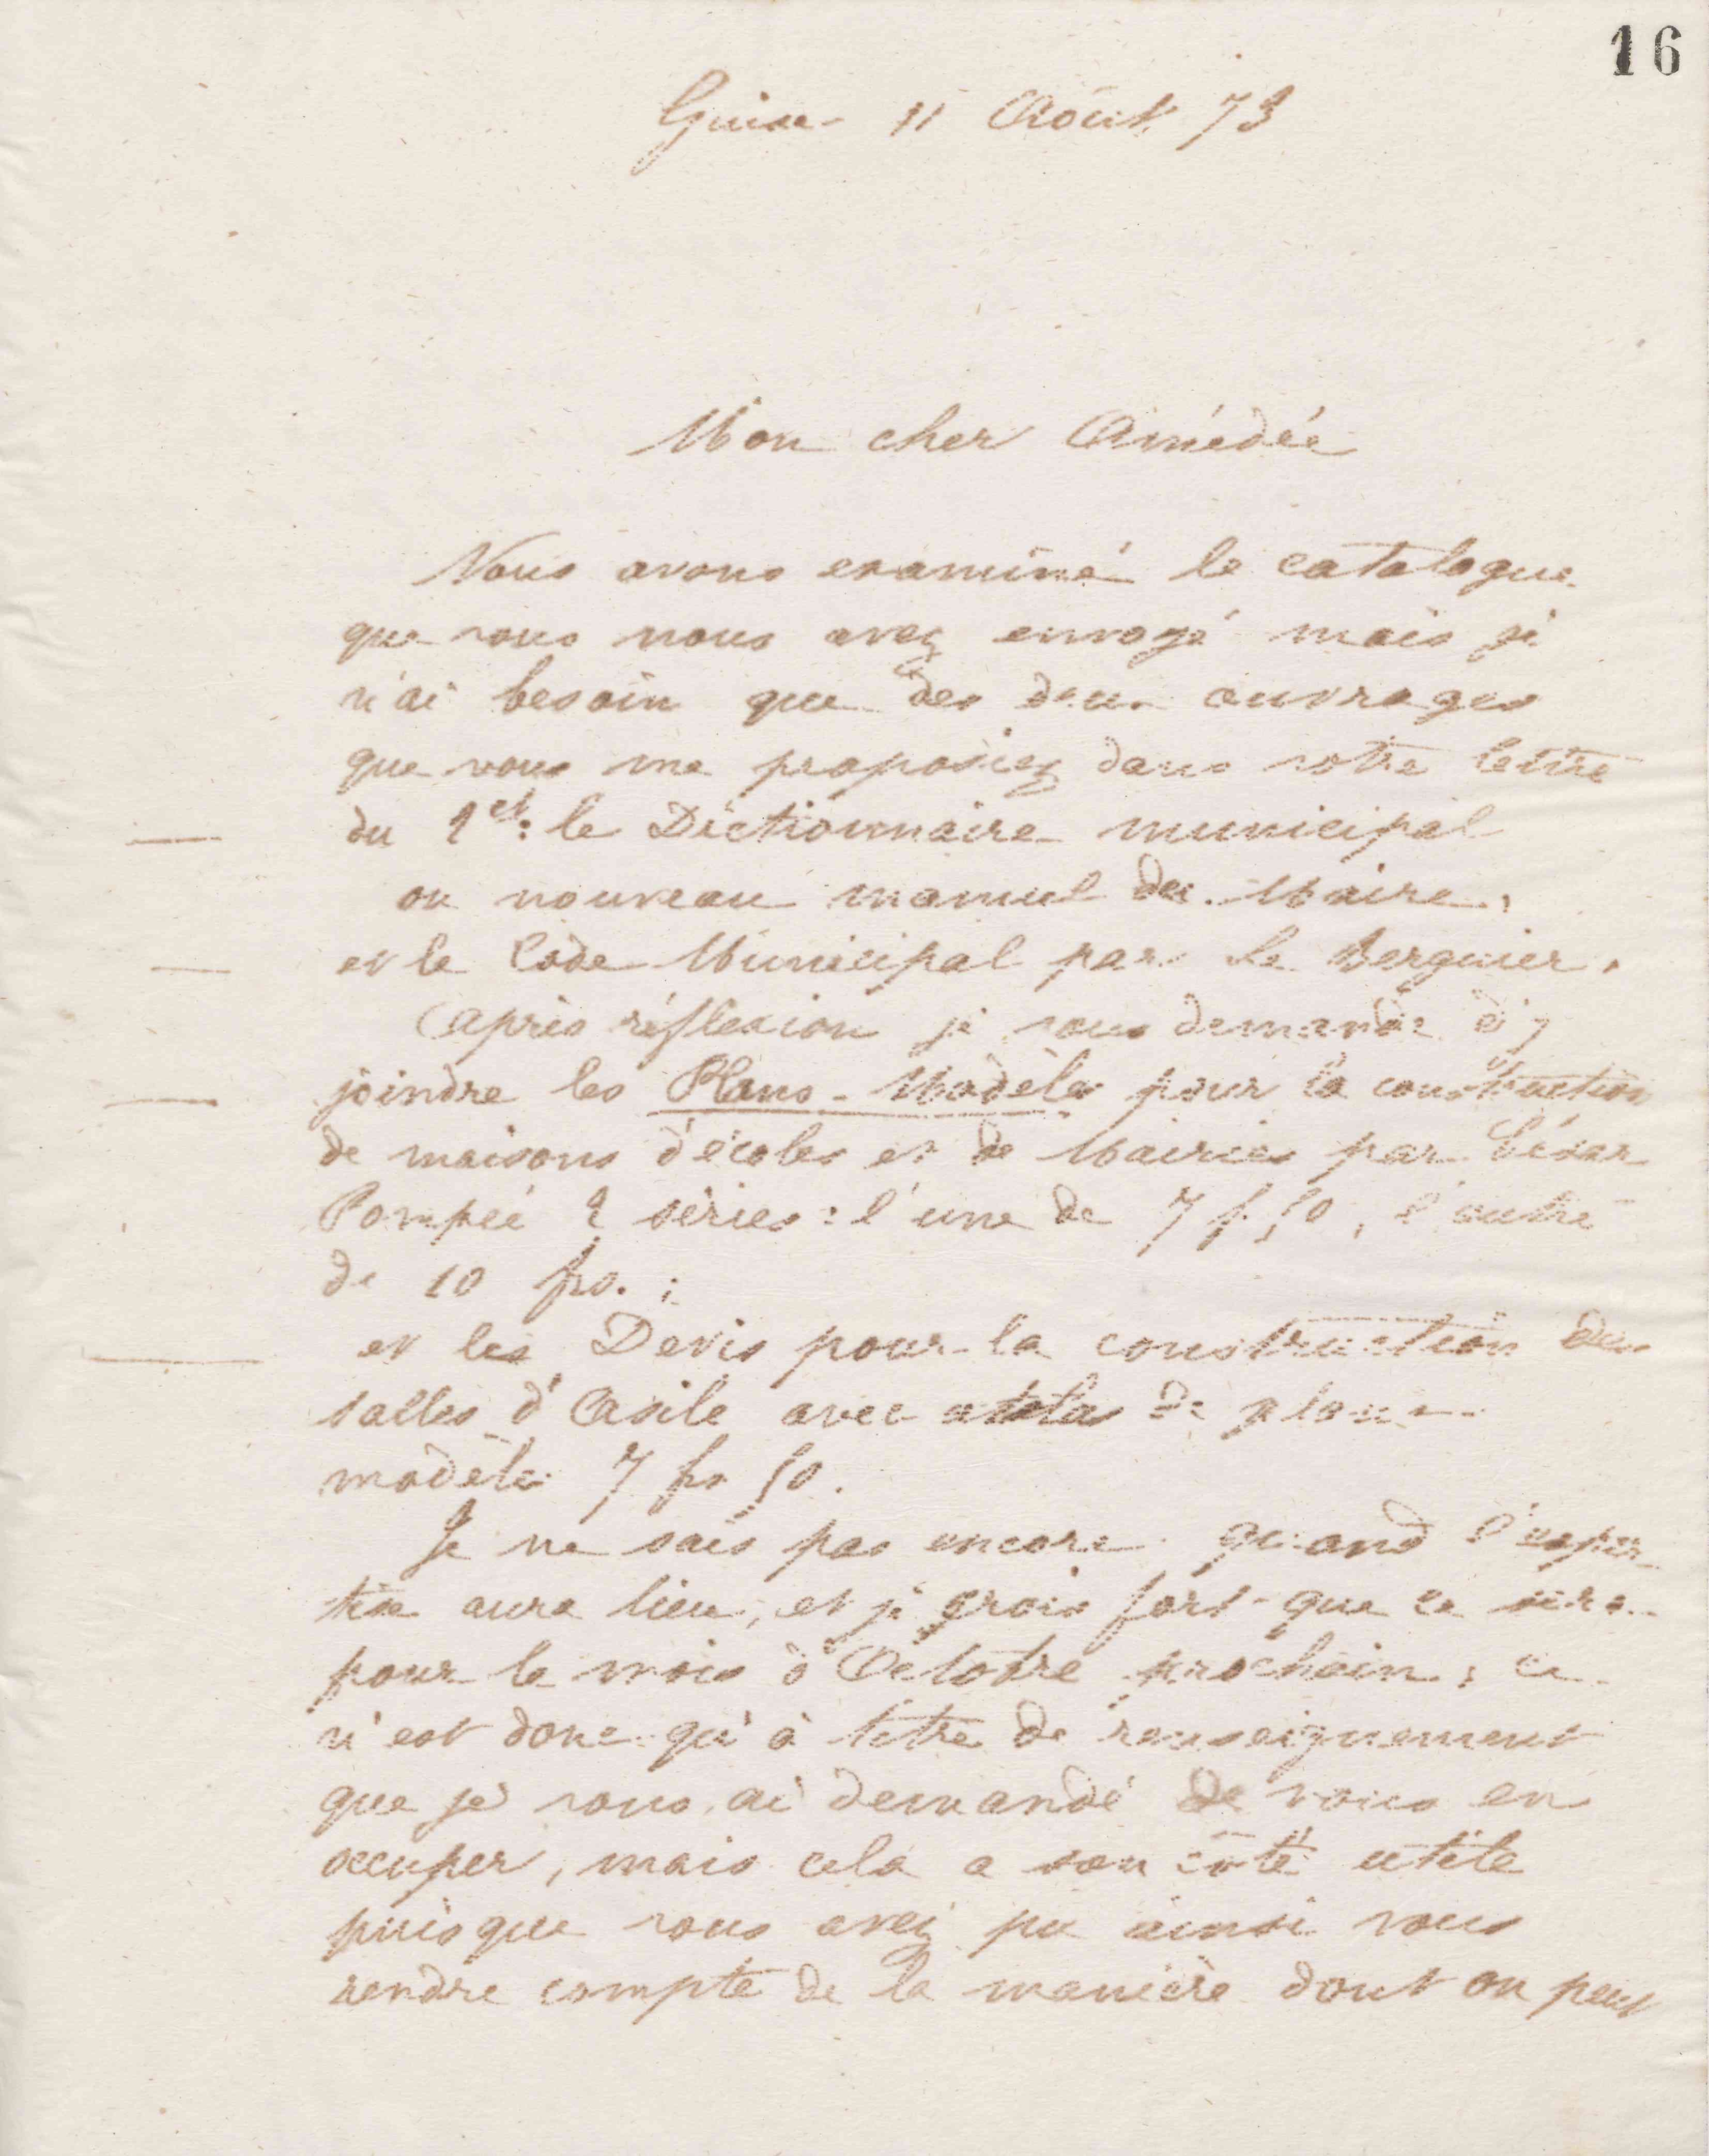 16
Guise 11 Août 73
Mon cher Amédée
Nous avons examiné le catalogue
que vous nous avez envoyé mais je
n'ai besoin que des deux ouvrages
que vous me proposiez dans votre lettre
du 1er : le Dictionnaire municipal
ou nouveau manuel des Maires,
et le Code Municipal par Le Berquier.
Après réflexion je vous demande d'y
joindre les Plans-Modèles pour la construction
de maisons d'écoles et de Mairies par César
Pompée 2 séries : l'une de 7 f. 50, l'autre
de 10 frs. ;
et les Devis pour la construction des
salles d'Asile avec atlas de plans
modèles 7 frs 50.
Je ne sais pas encore quand l'exper
tise aura lieu, et je crois fort que ce sera
pour le mois d'Octobre prochain ; ce
n'est donc qu'à titre de renseignement
que je vous ai demandé de vous en
occuper, mais cela a son côté utile
puisque vous avez pu ainsi vous
rendre compte de la manière dont on peut